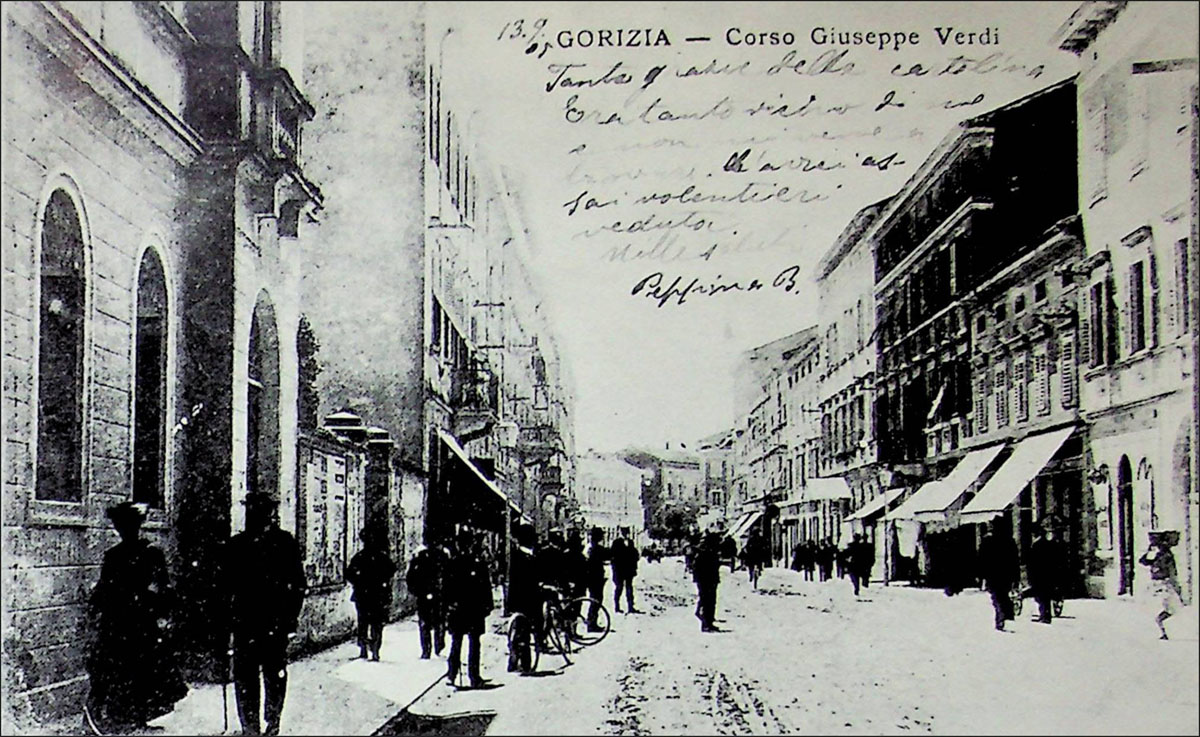 13.9.05
GORIZIA — Corso Giuseppe Verdi
Tante grazie della cartolina
Era tanto vicino di me
e non
trovare. L'avrei as-
sai volentieri
veduta.
Mille saluti
Peppina B.